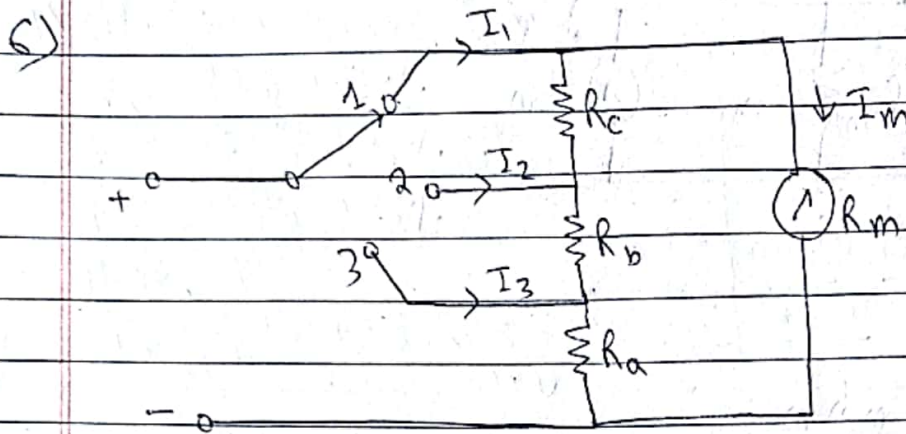 6)
I1
1
Rc
Im
+
2
I2
Rm
Rb
3
I3
Ra
-